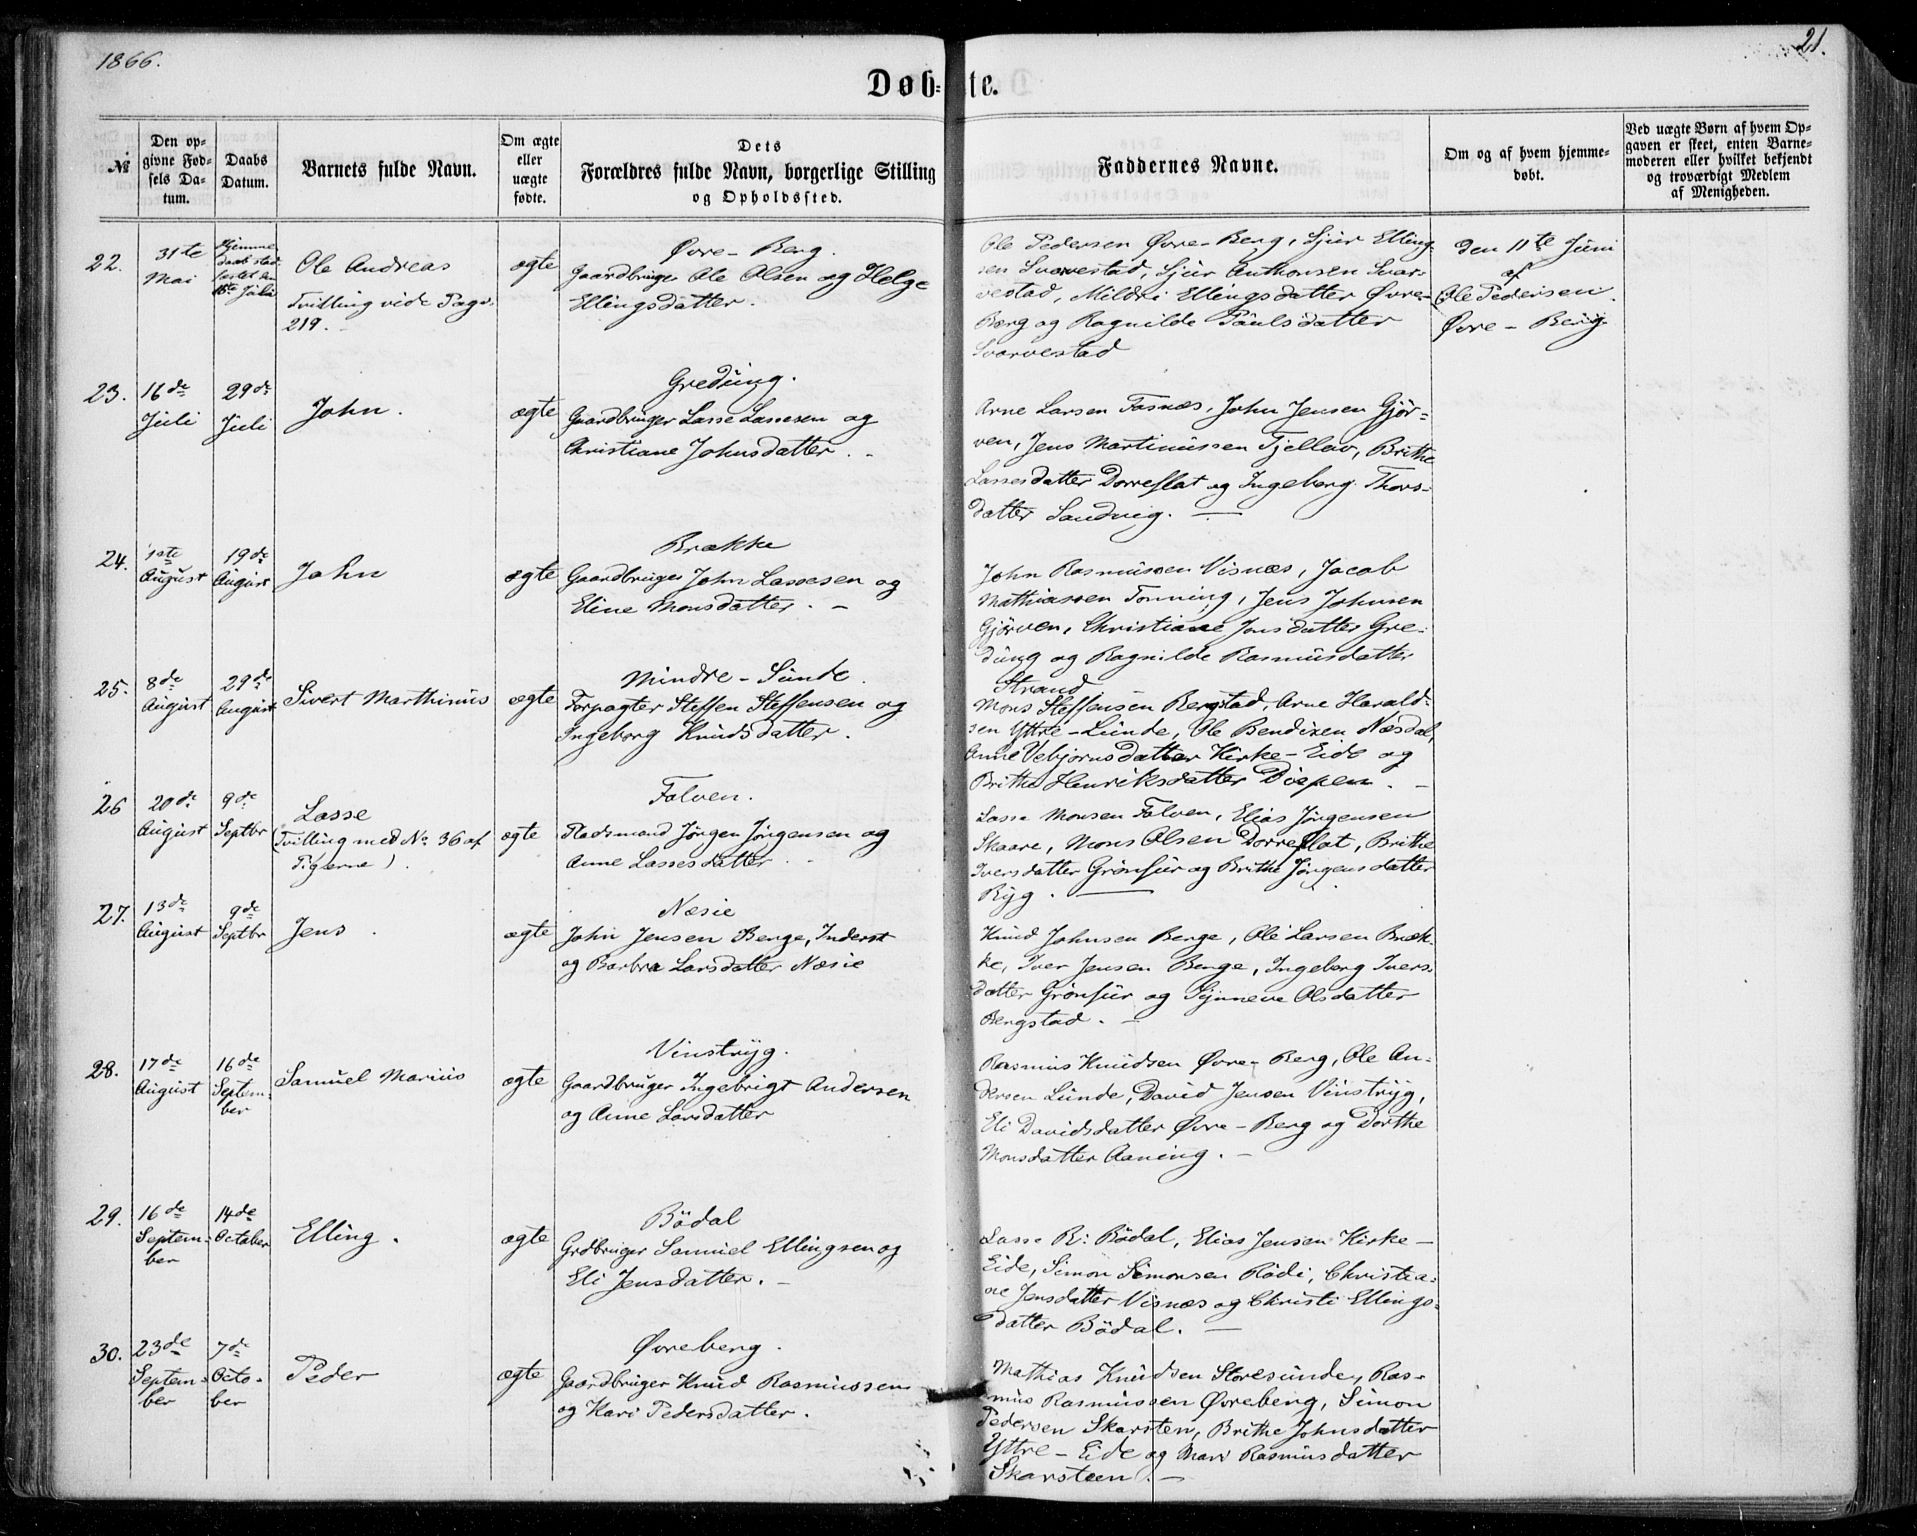 1866.
21.
Døb-te.
№
Den op-
givne Fød-
sels Da-
tum.
Daabs
Datum.
Barnets fulde Navn.
Om ægte
eller
uægte
fødte.
Dets
Forældres fulde Navn, borgerlige Stilling
og Opholdssted.
Faddernes Navne.
Om og af hvem hjemme-
døbt.
Ved uægte Børn af hvem Op-
gaven er skeet, enten Barne-
moderen eller hvilket bekjendt
og troværdigt Medlem
af Menigheden.
22.
31te
Mai
Hjemme
daab stad
festet den
15te Juli
Ole Andreas
Tvilling vide Pag.
219.
ægte
Øvre-Berg.
Gaardbruger Ole Olsen og Helge
Ellingsdatter.
Ole Pedersen Øvre-Berg, Sjur Elling-
sen Svarvestad, Sjur Anthonsen Svar-
vestad, Mildri Ellingsdatter Øvre-
Berg og Ragnilde Paulsdatter
Svarvestad
Den 11te Juni
af
Ole Pedersen
Øvre-Berg
23.
16de
Juli
29de
Juli
John.
ægte
Gredung.
Gaardbruger Lasse Lassesen og
Christiane Johnsdatter. -
Arne Larsen Fosnæs, John Jensen Gjör-
ven, Jens Martinussen Tjellov, Brithe
Lassesdatter Dorreflat og Ingeborg Thors-
datter Sandvig. —
24.
1ste
August
19de
August
John
ægte
Brække
Gaardbruger John Lassesen og
Eline Monsdatter. -
John Rasmussen Visnæs, Jacob
Mathiassen Tonning, Jens Johnsen
Gjörven, Christiane Jonsdatter Gre-
dung og Ragnilde Rasmusdatter
Strand
25.
8de
August
29de
August
Sivert Marthinus
ægte
Mindre-Sunde.
Forpagter Steffen Steffensen og
Ingeborg Knudsdatter.
Mons Steffensen Bergstad, Arne Harald-
sen Yttre-Lunde, Ole Bendixen Næsdal,
Anne Vebjörnsdatter Kirke-Eide og
Brithe Henriksdatter Döepen. -
26
20de
August
9de
Septbr
Lasse
(Tvilling med No 36 af
Pigerne).
ægte
Folven.
Pladsmand Jörgen Jörgensen og
Anne Lassesdatter.
Lasse Monsen Folven, Elias Jörgensen
Skaare, Mons Olsen Dorreflat, Brithe
Iversdatter Grönfur og Brithe Jörgensdatter
Ryg. —
27.
13de
August
9de
Septbr
Jens.
ægte
Næsie
John Jensen Berge, Inderst
og Barbra Larsdatter Næsie
Knud Johnsen Berge, Ole Larsen Bræk-
ke, Iver Jensen Berge, Ingeborg Ivers-
datter Grönfur og Synneve Olsdatter
Bergstad. -
28.
17de
August
16de
Septem-
ber
Samuel Marius
ægte
Vinstryg.
Gaardbruger Ingebrigt Andersen
og Anne Larsdatter
Rasmus Knudsen Øvre-Berg, Ole An-
dersen Lunde, David Jensen Vinstryg,
Eli Davidsdatter Øvre-Berg og Dorthe
Monsdatter Aaning. -
29.
16de
Septem-
ber
14de
October
Elling.
ægte
Bödal
Grdbruger Samuel Ellingsen og
Eli Jensdatter. -
Lasse R: Bödal, Elias Jensen Kirke-
Eide, Simon Simonsen Rödi, Christia-
ne Jensdatter Visnæs og Christi Ellings-
datter Bödal. —
30.
23de
Septem-
ber
7de
Octo-
ber
Peder
ægte
Øvreberg.
Gaardbruger Knud Rasmussen
og Kari Pedersdatter.
Mathias Knudsen Storesunde, Ras-
mus Rasmussen Øvreberg, Simon
Pedersen Skarsten, Brithe Johnsdatter
Yttre-Eide og Mari Rasmusdatter
Skarsteen. -